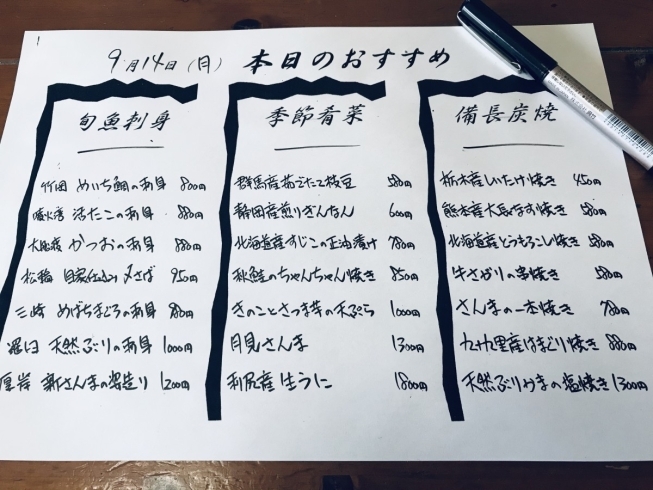 1
9月14日(月) 本日のおすすめ
旬魚刺身
竹岡 めいち鯛のお刺身 800円
活たこのお刺身 880円
かつおのお刺身 880円
松輪 自家仕込み〆さば 950円
三崎 めばちまぐろのお刺身 980円
羅臼 天然ぶりのお刺身 1000円
厚岸 新さんまの姿造り 1200円
季節肴菜
群馬産茹でたて枝豆 580円
静岡産煎りぎんなん 600円
北海道産すじこの正油漬け 780円
秋鮭のちゃんちゃん焼き 850円
きのことさつま芋の天ぷら 1000円
月見さんま 1300円
利尻産生うに 1800円
備長炭焼
栃木産しいたけ焼き 450円
熊本産大長なす焼き 580円
北海道産とうもろこし焼き 580円
牛さがりの串焼き 580円
さんまの一本焼き 780円
九十九里産はまぐり焼き 880円
天然ぶりかまの塩焼き 1300円